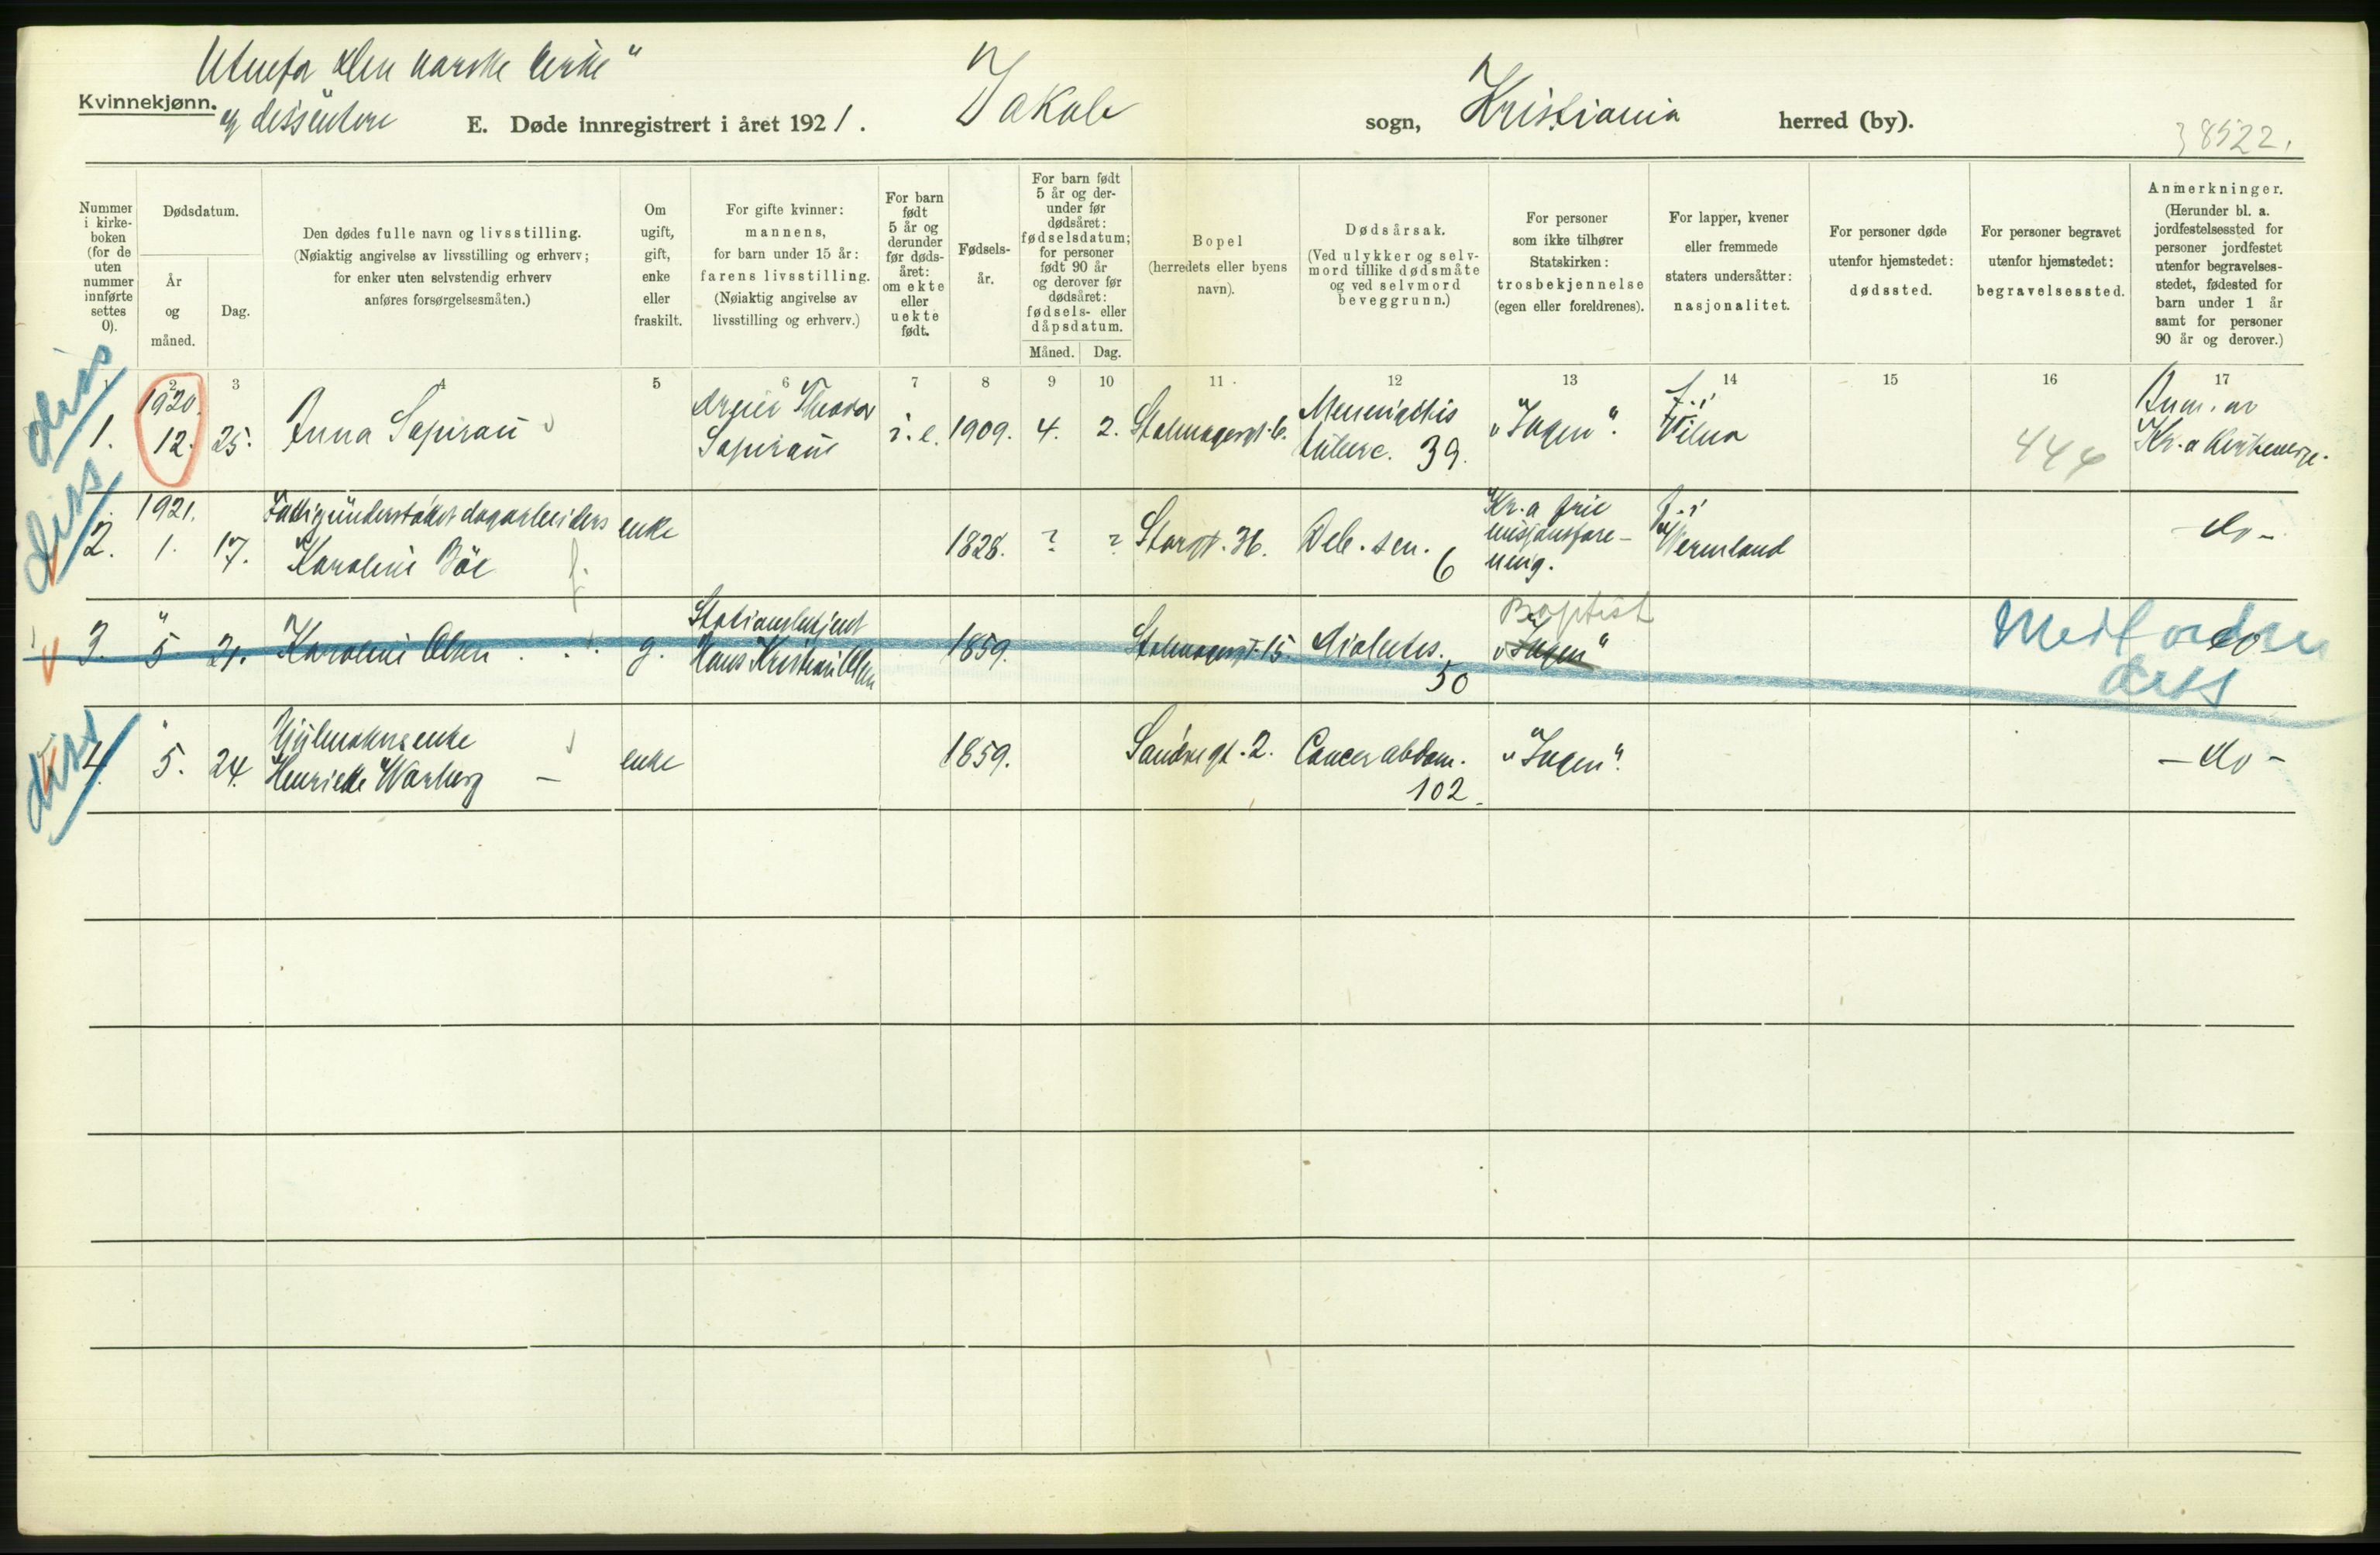 Utenfor den norske kirke"
og dissentere
Kvinnekjønn.
E. Døde innregistrert i året 1921.
Jakob
sogn,
Kristiania
herred (by).
38522.
Nummer
i kirke-
boken
(for de
uten
nummer
innførte
settes
0).
Dødsdatum.
År
og
måned.
Dag.
Den dødes fulle navn og livsstilling.
(Nøiaktig angivelse av livsstilling og erhverv;
for enker uten selvstendig erhverv
anføres forsørgelsesmåten.)
Om
ugift,
gift,
enke
eller
fraskilt.
For gifte kvinner:
mannens,
for barn under 15 år:
farens livsstilling.
(Nøiaktig angivelse av
livsstilling og erhverv.)
For barn
født
5 år og
derunder
før døds-
året:
om ekte
eller
uekte
født.
Fødsels-
år.
For barn født
5 år og der-
under før
dødsåret:
fødselsdatum;
for personer
født 90 år
og derover før
dødsåret:
fødsels- eller
dåpsdatum.
Måned. Dag.
Bopel
(herredets eller byens
navn).
Dødsårsak.
(Ved ulykker og selv-
mord tillike dødsmåte
og ved selvmord
beveggrunn.)
For personer
som ikke tilhører
Statskirken:
trosbekjennelse
(egen eller foreldrenes).
For lapper, kvener
eller fremmede
staters undersåtter:
nasjonalitet.
For personer døde
utenfor hjemstedet:
dødssted.
For personer begravet
utenfor hjemstedet:
begravelsessted.
Anmerkninger.
(Herunder bl. a.
jordfestelsessted for
personer jordfestet
utenfor begravelses-
stedet, fødested for
barn under 1 år
samt for personer
90 år og derover.)
1 2 3 4 5 6 7 8 9 10 11 12 13 14 15 16 17
diss
1.
1920.
12. 25.
Anna Sapirau
Theodor
Sapirau
i. e. 1909. 4. 2.
tuberc. 39.
"Ingen".
f. i
Vilna
444
Anm. av
diss
2.
1921.
1. 17.
Fattigunderstøttet dagarbeiders
Karoline Böe
f.
enke
1828. ? ?
Storgt. 36.
Deb. sen. 6
Kr.a frie
misjonsfore-
ning.
f. i
Vermland
- do -
3. " 5 21.
Karoline Olsen
g.
Stationsbetjent
Hans Kristian Olsen
1859.
Diabetes.
50
Baptist
"Ingen"
do
Medl anden
diss
diss
4. " 5. 24.
Hjulmakersenke
Henriette Warberg
enke
1859.
Cancer abdom.
102.
"Ingen".
- do -